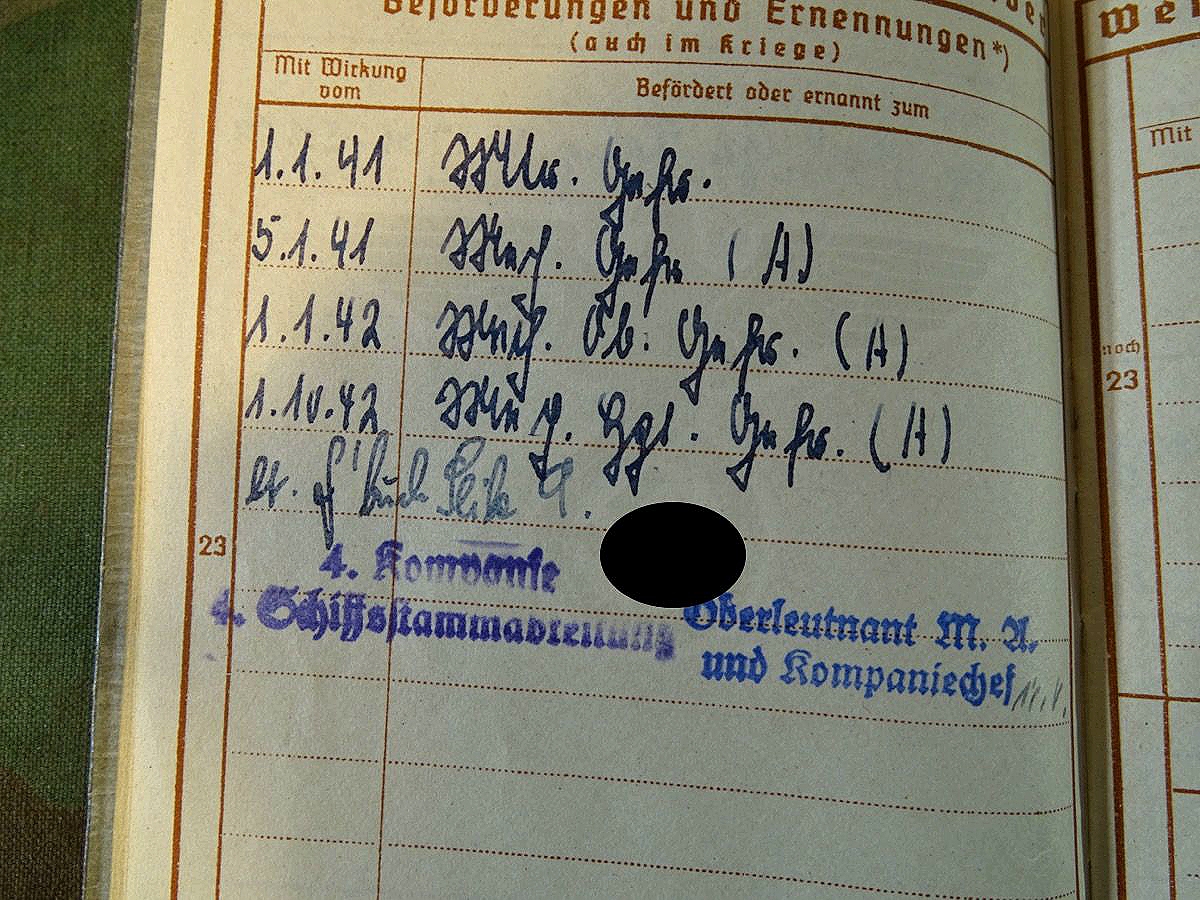 Beförderungen und Ernennungen*)
(auch im Kriege)
Mit Wirkung vom
Befördert oder ernannt zum
1.1.41 Mtr. Gefr.
5.1.41 Mech. Gefr. (A)
1.1.42 Mech. Ob. Gefr. (A)
1.10.42 Mech. Hpt. Gefr. (A)
lt.
23
4. Kompanie
4. Schiffsstammabteilung
Oberleutnant M. A.
und Kompaniechef
Mit
noch
23